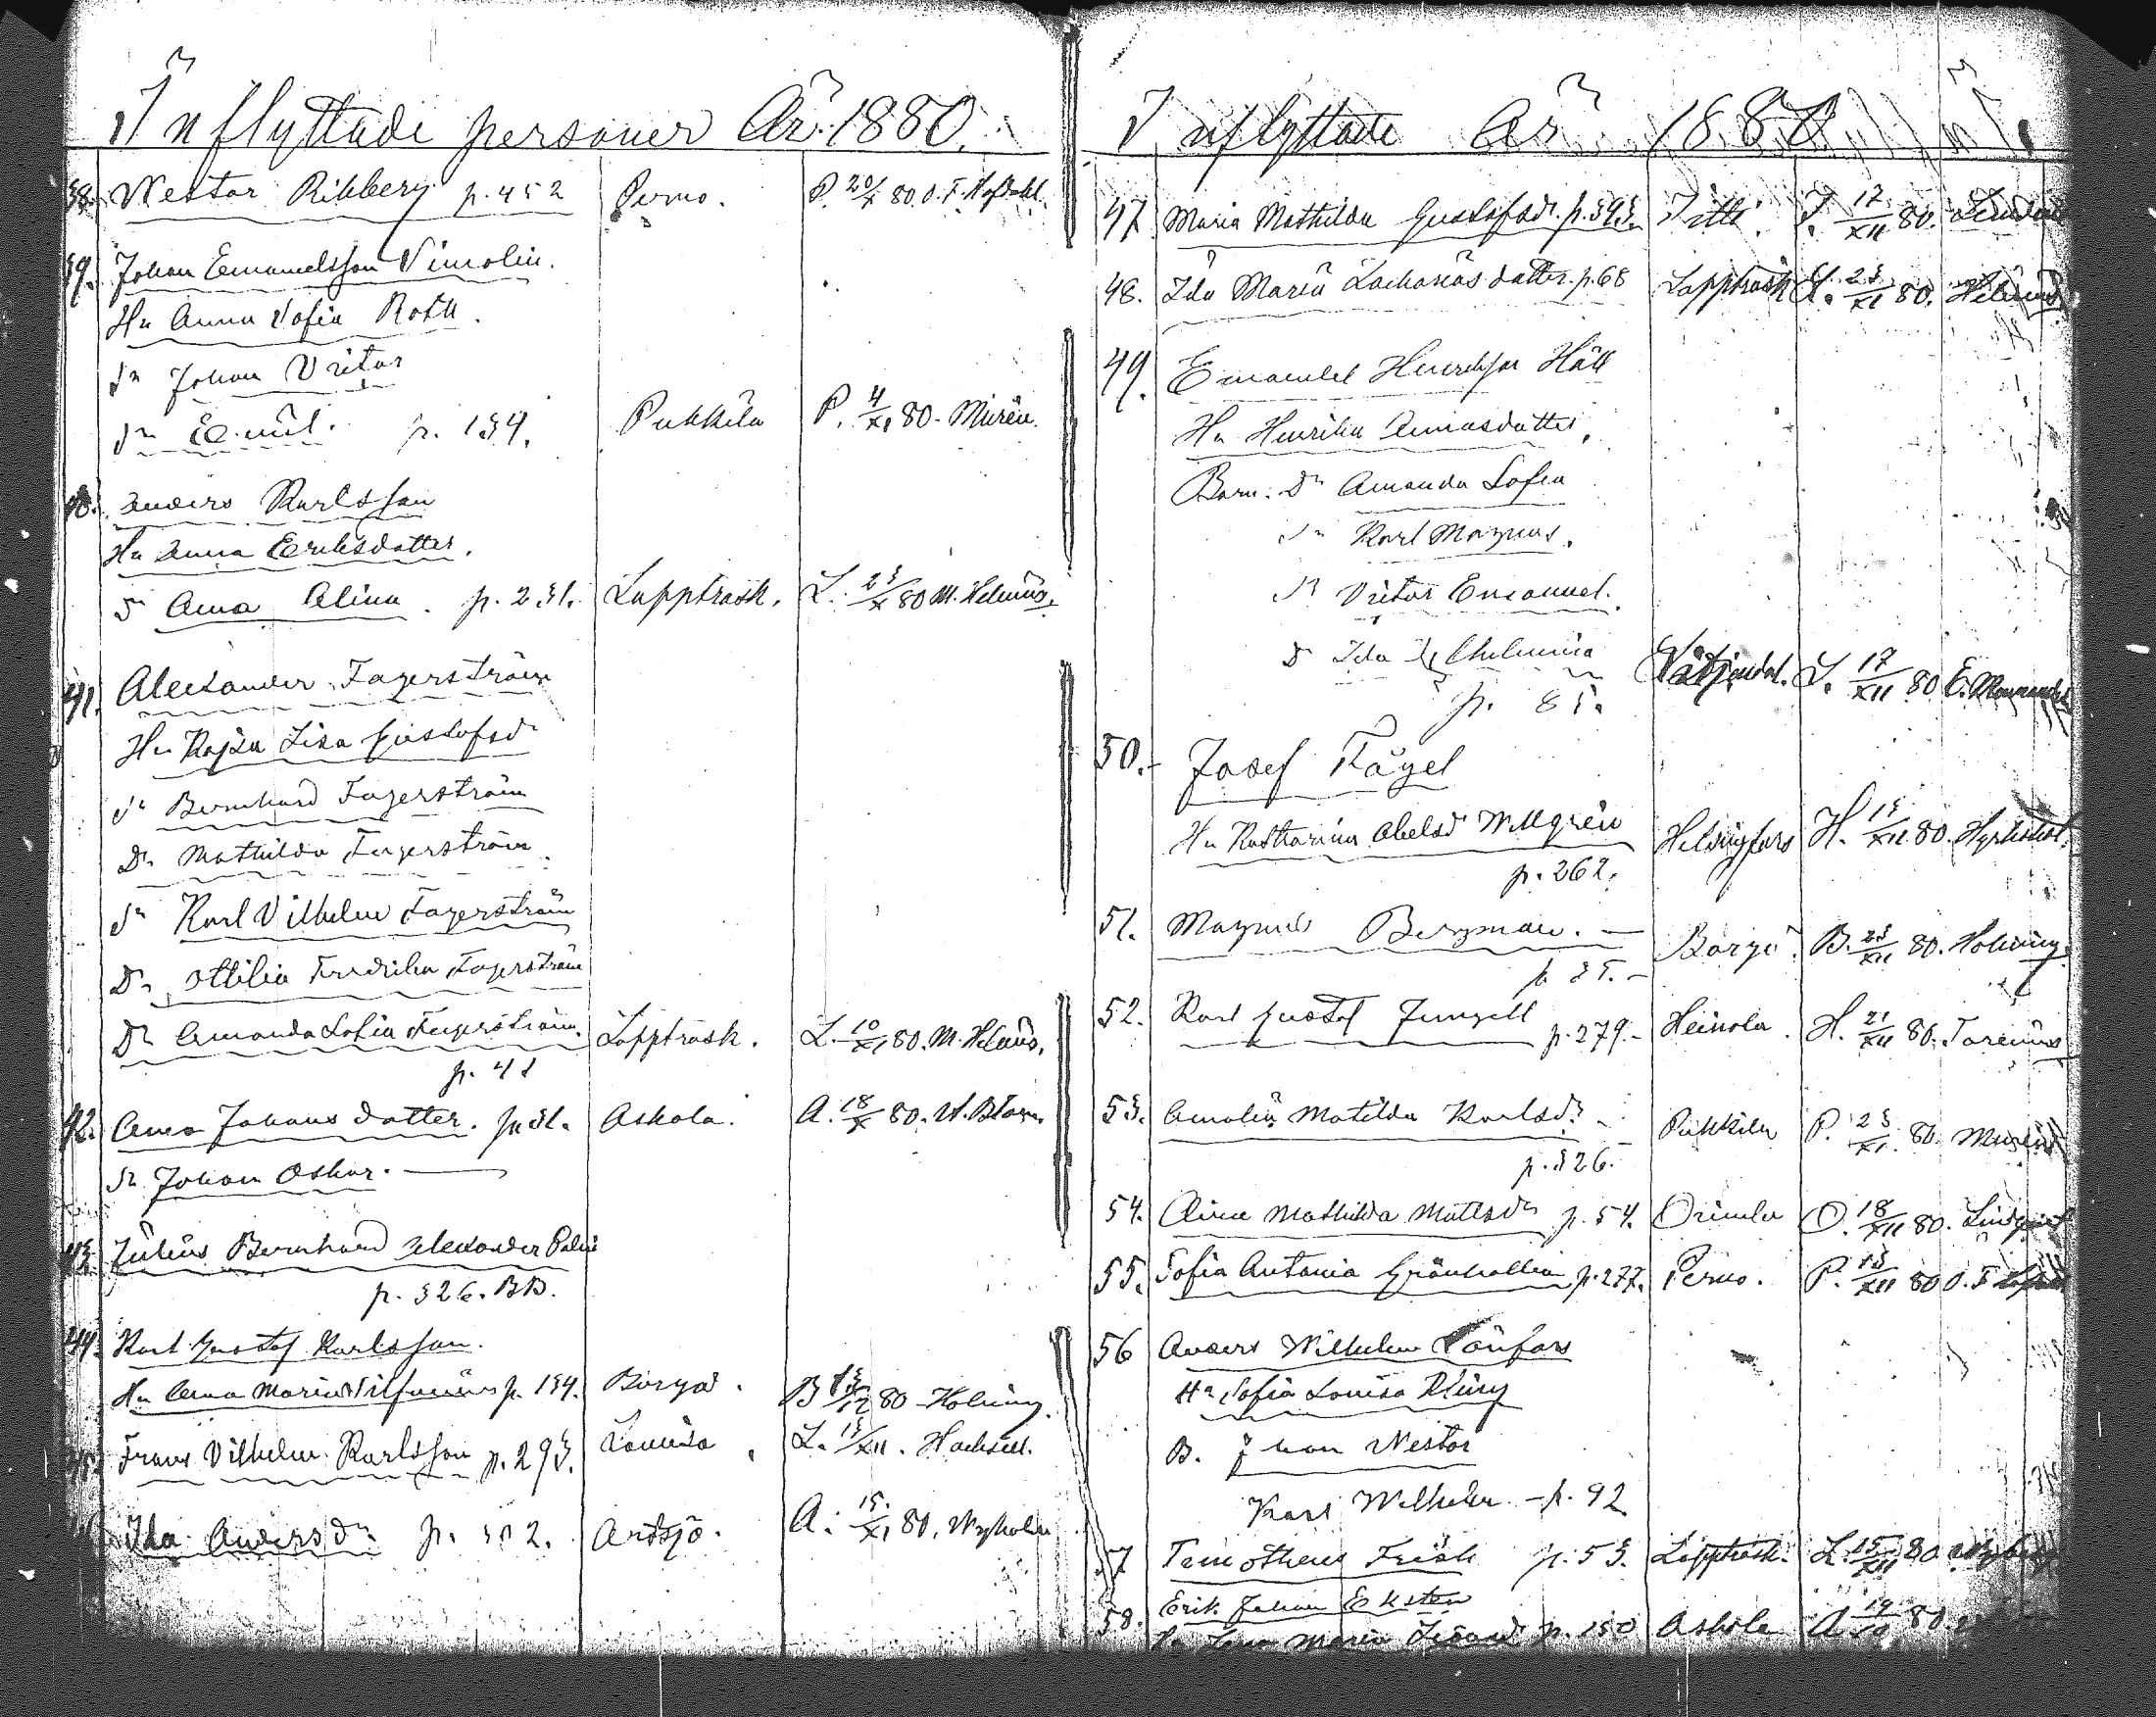 Inflyttade personer År 1880.
38. Nestor Ribberg p. 452 Perno. P. 20/X 80 O. F. Hofdahl.
39. Johan Emanuelsson Vimolin.
Hu Anna Sofia Roth.
Sn Johan Victor
Sn Emil. p. 134. Pukkila P. 4/XI 80. Murén.
40. Anders Karlsson
Hu Anna Eriksdotter.
D Anna Alina. p. 231. Lappträsk. L. 23/X 80 M. Helenius.
41. Alexander Fagerström
Hu Kajsa Lisa Gustafsdr
Sn Bernhard Fagerström
Dr Mathilda Fagerström
Sn Karl Vilhelm Fagerström
Dr Ottilia Fredrika Fagerström
Dr Amanda Sofia Fagerström. Lappträsk. L. 10/XI 80. M. Helenius.
p. 41
42. Anna Johansdotter. p. 31. Askola. A. 18/X 80.
Sn Johan Oskar.
43. Julius Bernhard Alexander
p. 326. BB.
44. Karl Gustaf Karlsson.
Hu Anna Maria p. 134. Borgå. B 80 Holming.
45. Frans Vilhelm Karlsson p. 293. Lovisa. L. 13/XII.
46. Ida Andersdr p. 302. Artsjö. A. 15/XI 80. Nyholm
Inflyttade År 1880
47. Maria Mathilda Gustafsdr. p. 393. Itti. I. 17/XII 80.
48. Ida Maria Zachariasdotter. p. 68 Lappträsk L. 23/XI 80. Helenius
49. Emanuel Henriksson Häll
Hu Henrika
Barn: Dr Amanda Sofia
Sn Karl Magnus.
Sn Victor Emanuel.
D Ida Vilhelmina Liljendal. L. 17/XII 80 E.
p. 83.
50. Josef Fågel
Hu Katharina Abelsdr Willgrén Helsingfors H. 15/XII 80.
p. 262.
51. Magnus Bergman. Borgå. B. 23/XII 80. Holming.
p. 35.
52. Karl Gustaf Jungell p. 279. Heinola. H. 21/XII 80.
53. Amalia Matilda Karlsdr. Pukkila P. 23/XI. 80. Murén
p. 326.
54. Alina Mathilda Mattsdr p. 54. Orimila O. 18/XII 80. Lindqvist
55. Sofia Antonia p. 277. Perno. P. 13/XII 80 O. F.
56 Anders Wilhelm Lönfors
Hu Sofia Lovisa Kling
B. Johan Nestor
Karl Wilhelm p. 92
57 Timotheus Frisk p. 53. Lappträsk. L. 15/XII 80
58. Erik Johan Eksten
Hu Lena Maria p. 150 Askola A 80.